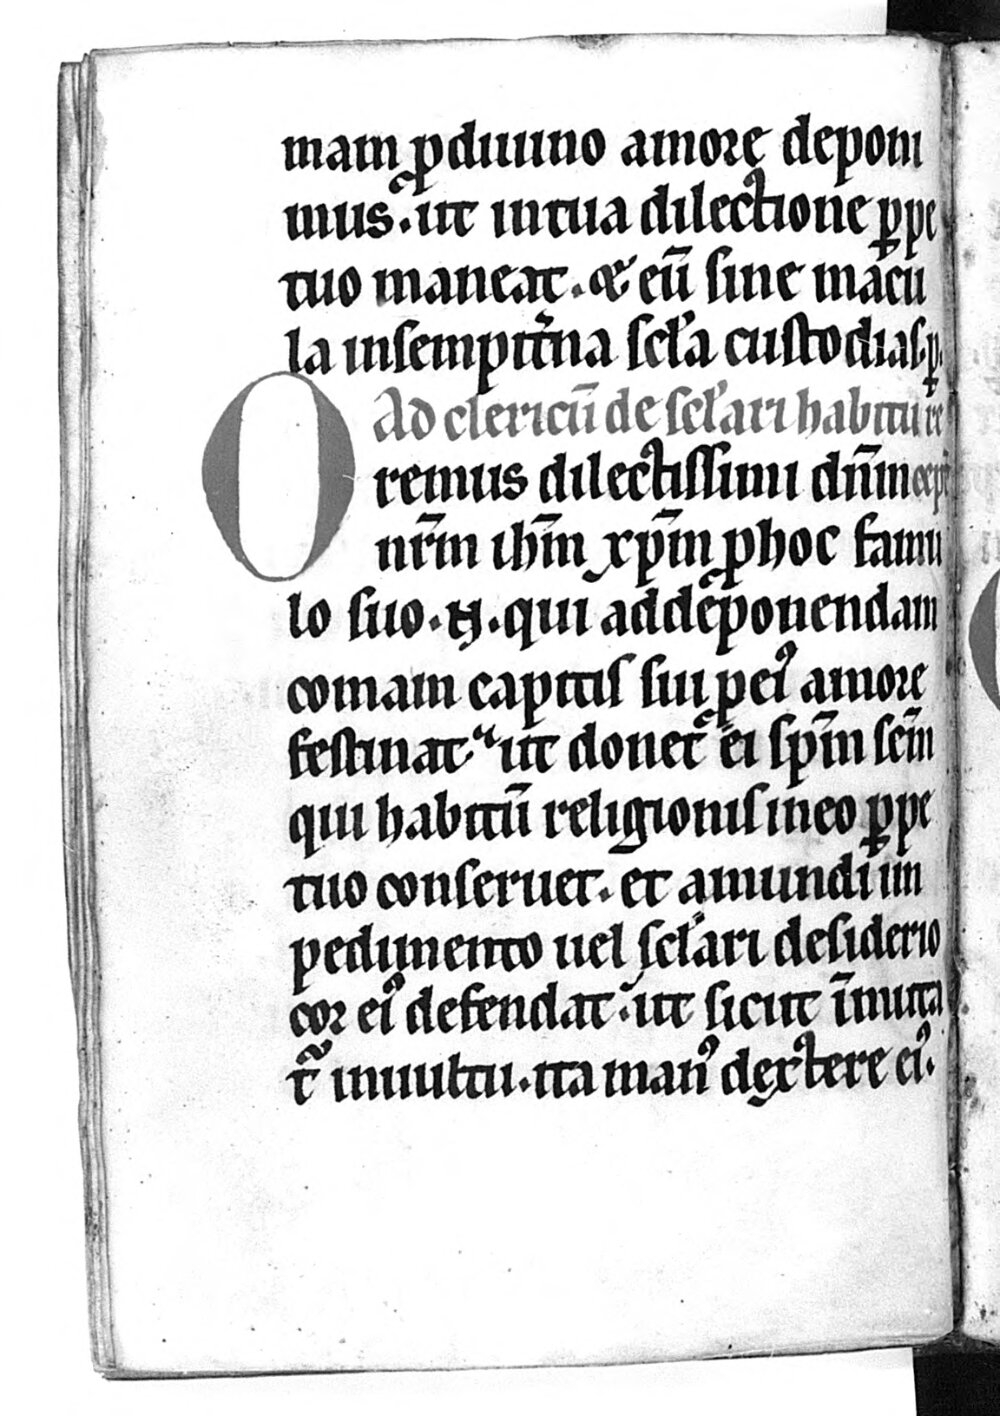 mam ꝓ diuino amore deponi
mus. ut in tua dilectione ꝑpe
tuo maneat. & eū sine macu
la in sempit̄na scl̄a custodias. ꝑ.
Ad clericū de scl̄ari habitu re
Oremus dilectissimi dn̄m
nr̄m ih̄m xp̄m ꝓ hoc famu
lo suo. N. qui ad deponendam
comam capitis sui ꝓ eiꝰ amore
festinat. ut donet ei sp̄m sc̄m
qui habitū religionis in eo ꝑpe
tuo conseruet. et a mundi im
pedimento uel scl̄ari desiderio
cor eiꝰ defendat. ut sicut īmuta
t᷑ in uultu. ita manꝰ dextere eiꝰ.